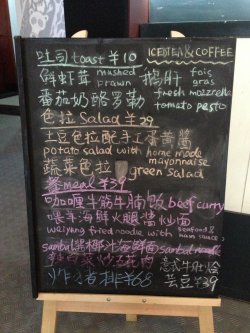 吐司 toast ¥10 ICEDTEA & COFFEE
鲜虾茸 mashed prawn 鹅肝 foie gras
番茄奶酪罗勒 fresh mozzarella tomato pesto
色拉 Salad ¥29
土豆色拉配手工蛋黄酱
potato salad with home made mayonnaise
蔬菜色拉 green salad
餐 meal ¥39
咖喱牛筋牛腩饭 beef curry
海鲜火腿酱炒面
weiyang fried noodle with seafood & ham sauce
sambal 椰汁海鲜面 sambal
炒五花肉 意式牛肚烩
排 ¥68 芸豆 ¥39